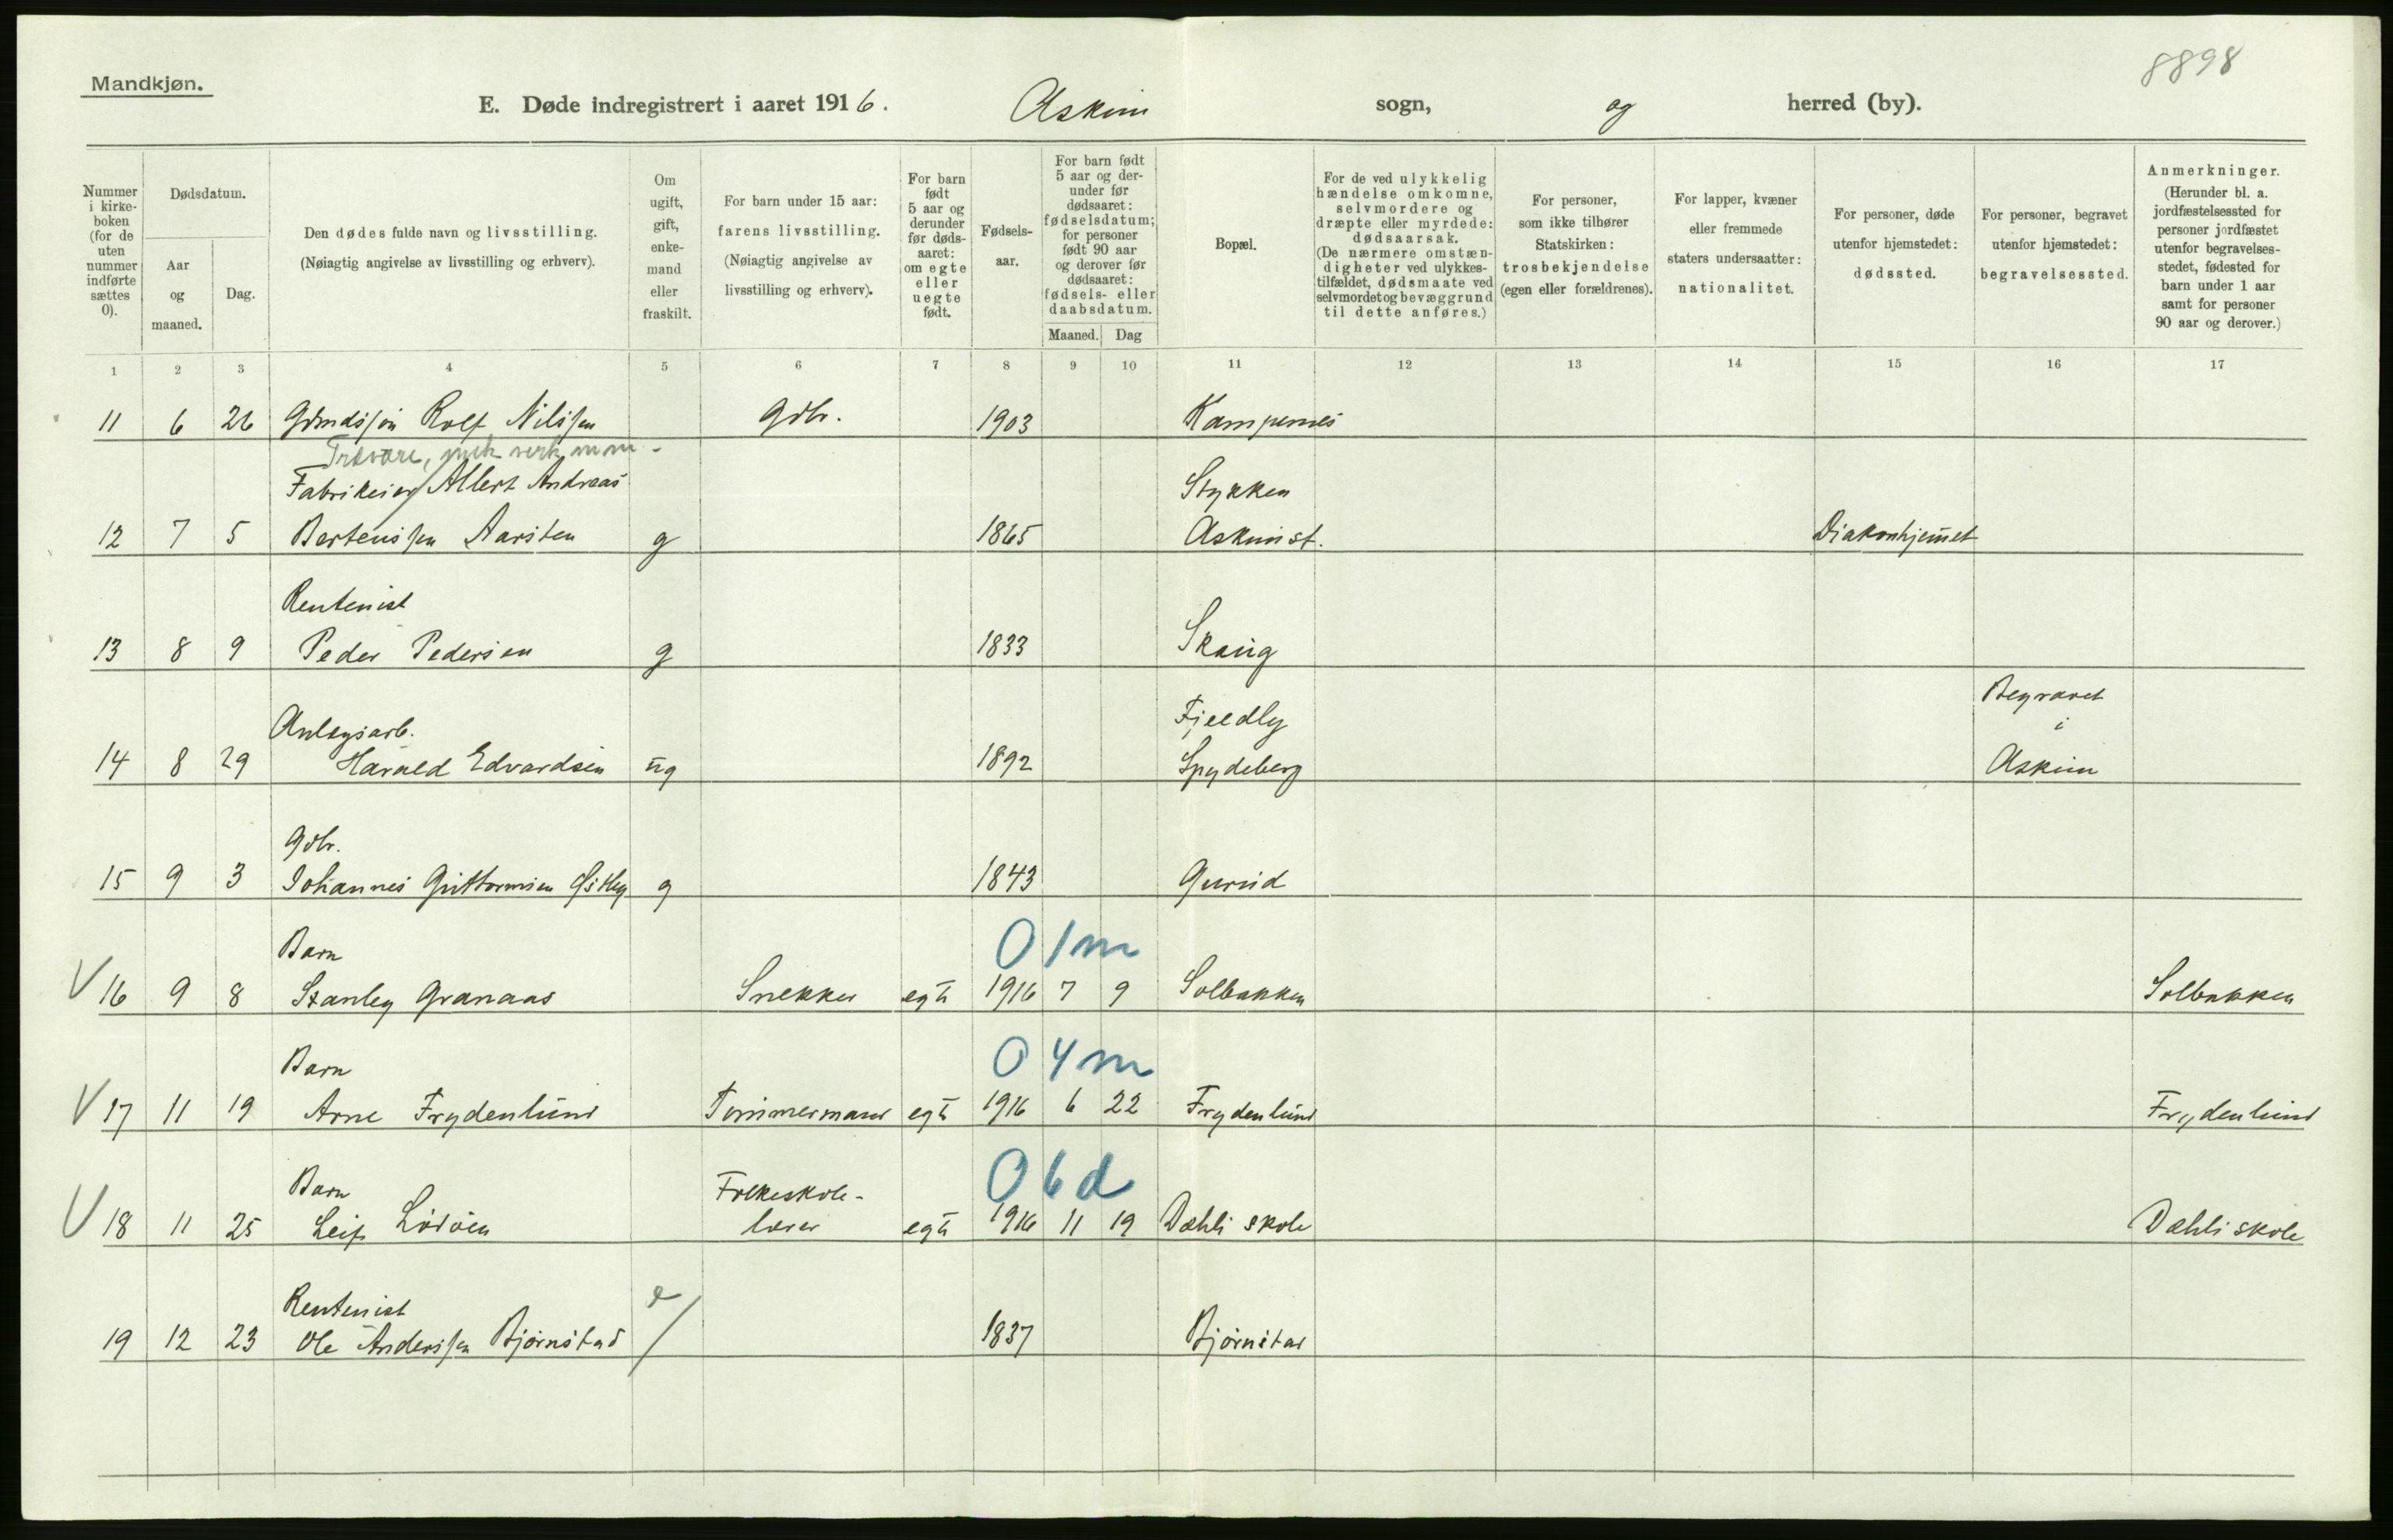 8898
Mandkjøn.
E. Døde indregistrert i aaret 1916. Askim sogn, og herred (by).
Nummer i kirkeboken (for de uten nummer indførte sættes 0).
Dødsdatum.
Aar og maaned.
Dag.
Den dødes fulde navn og livsstilling.
(Nøiagtig angivelse av livsstilling og erhverv).
Om ugift, gift, enkemand eller fraskilt.
For barn under 15 aar: farens livsstilling.
(Nøiagtig angivelse av livsstilling og erhverv).
For barn født 5 aar og derunder før dødsaaret: om egte eller uegte født.
Fødselsaar.
For barn født 5 aar og derunder før dødsaaret: fødselsdatum; for personer født 90 aar og derover før dødsaaret: fødsels- eller daabsdatum.
Maaned. Dag
Bopæl.
For de ved ulykkelig hændelse omkomne, selvmordere og dræpte eller myrdede: dødsaarsak.
(De nærmere omstændigheter ved ulykkestilfældet, dødsmaate ved selvmordet og bevæggrund til dette anføres.)
For personer, som ikke tilhører Statskirken: trosbekjendelse (egen eller forældrenes).
For lapper, kvæner eller fremmede staters undersaatter: nationalitet.
For personer, døde utenfor hjemstedet: dødssted.
For personer, begravet utenfor hjemstedet: begravelsessted.
Anmerkninger.
(Herunder bl. a. jordfæstelsessted for personer jordfæstet utenfor begravelsesstedet, fødested for barn under 1 aar samt for personer 90 aar og derover.)
1 2 3 4 5 6 7 8 9 10 11 12 13 14 15 16 17
11 6 26 Rolf Nilssen Gbr. 1903 Kampenes
Trævare, mek verk m m -
Fabrikeier Albert Andreas Stykken
12 7 5 Bertenssen Aarsten g 1865 Askimst. Diakonhjemmet
Rentenist
13 8 9 Peder Pedersen g 1833 Skaug
Anlegsarb. Fjeldly Begravet i
14 8 29 Harald Edvardsen ug 1892 Spydeberg Askim
Gbr.
15 9 3 Johannes Guttormsen g 1843
Barn 0 1 m
V 16 9 8 Stanley Granaas Snekker egte 1916 7 9 Solbakken Solbakken
Barn 0 4 m
V 17 11 19 Arne Frydenlund Tømmermand egte 1916 6 22 Frydenlund Frydenlund
Barn Folkeskole- 0 6 d
V 18 11 25 Leif Lødøen lærer egte 1916 11 19 Dæhli skole Dæhli skole
Rentenist e
19 12 23 Ole Anderssen Bjørnstad / 1837 Bjørnstad